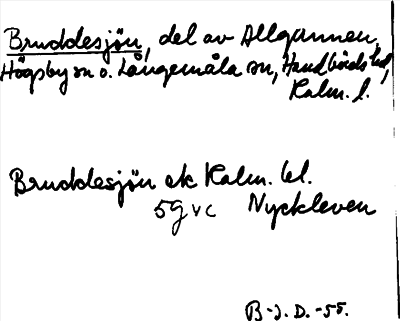 Bruddesjön, del av Allgunnen,
Högsby sn o. Långemåla sn, Handbörds hd,
Kalm. l.
Bruddesjön ek Kalm. bl.
5g vc Nyckleven
B-J. D. -55.